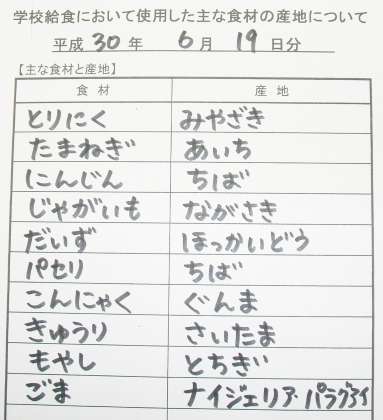 学校給食において使用した主な食材の産地について
平成 30 年 6 月 19 日分
【主な食材と産地】
食材 産地
とりにく みやざき
たまねぎ あいち
にんじん ちば
じゃがいも ながさき
だいず ほっかいどう
パセリ ちば
こんにゃく ぐんま
きゅうり さいたま
もやし とちぎ
ごま ナイジェリア・パラグアイ